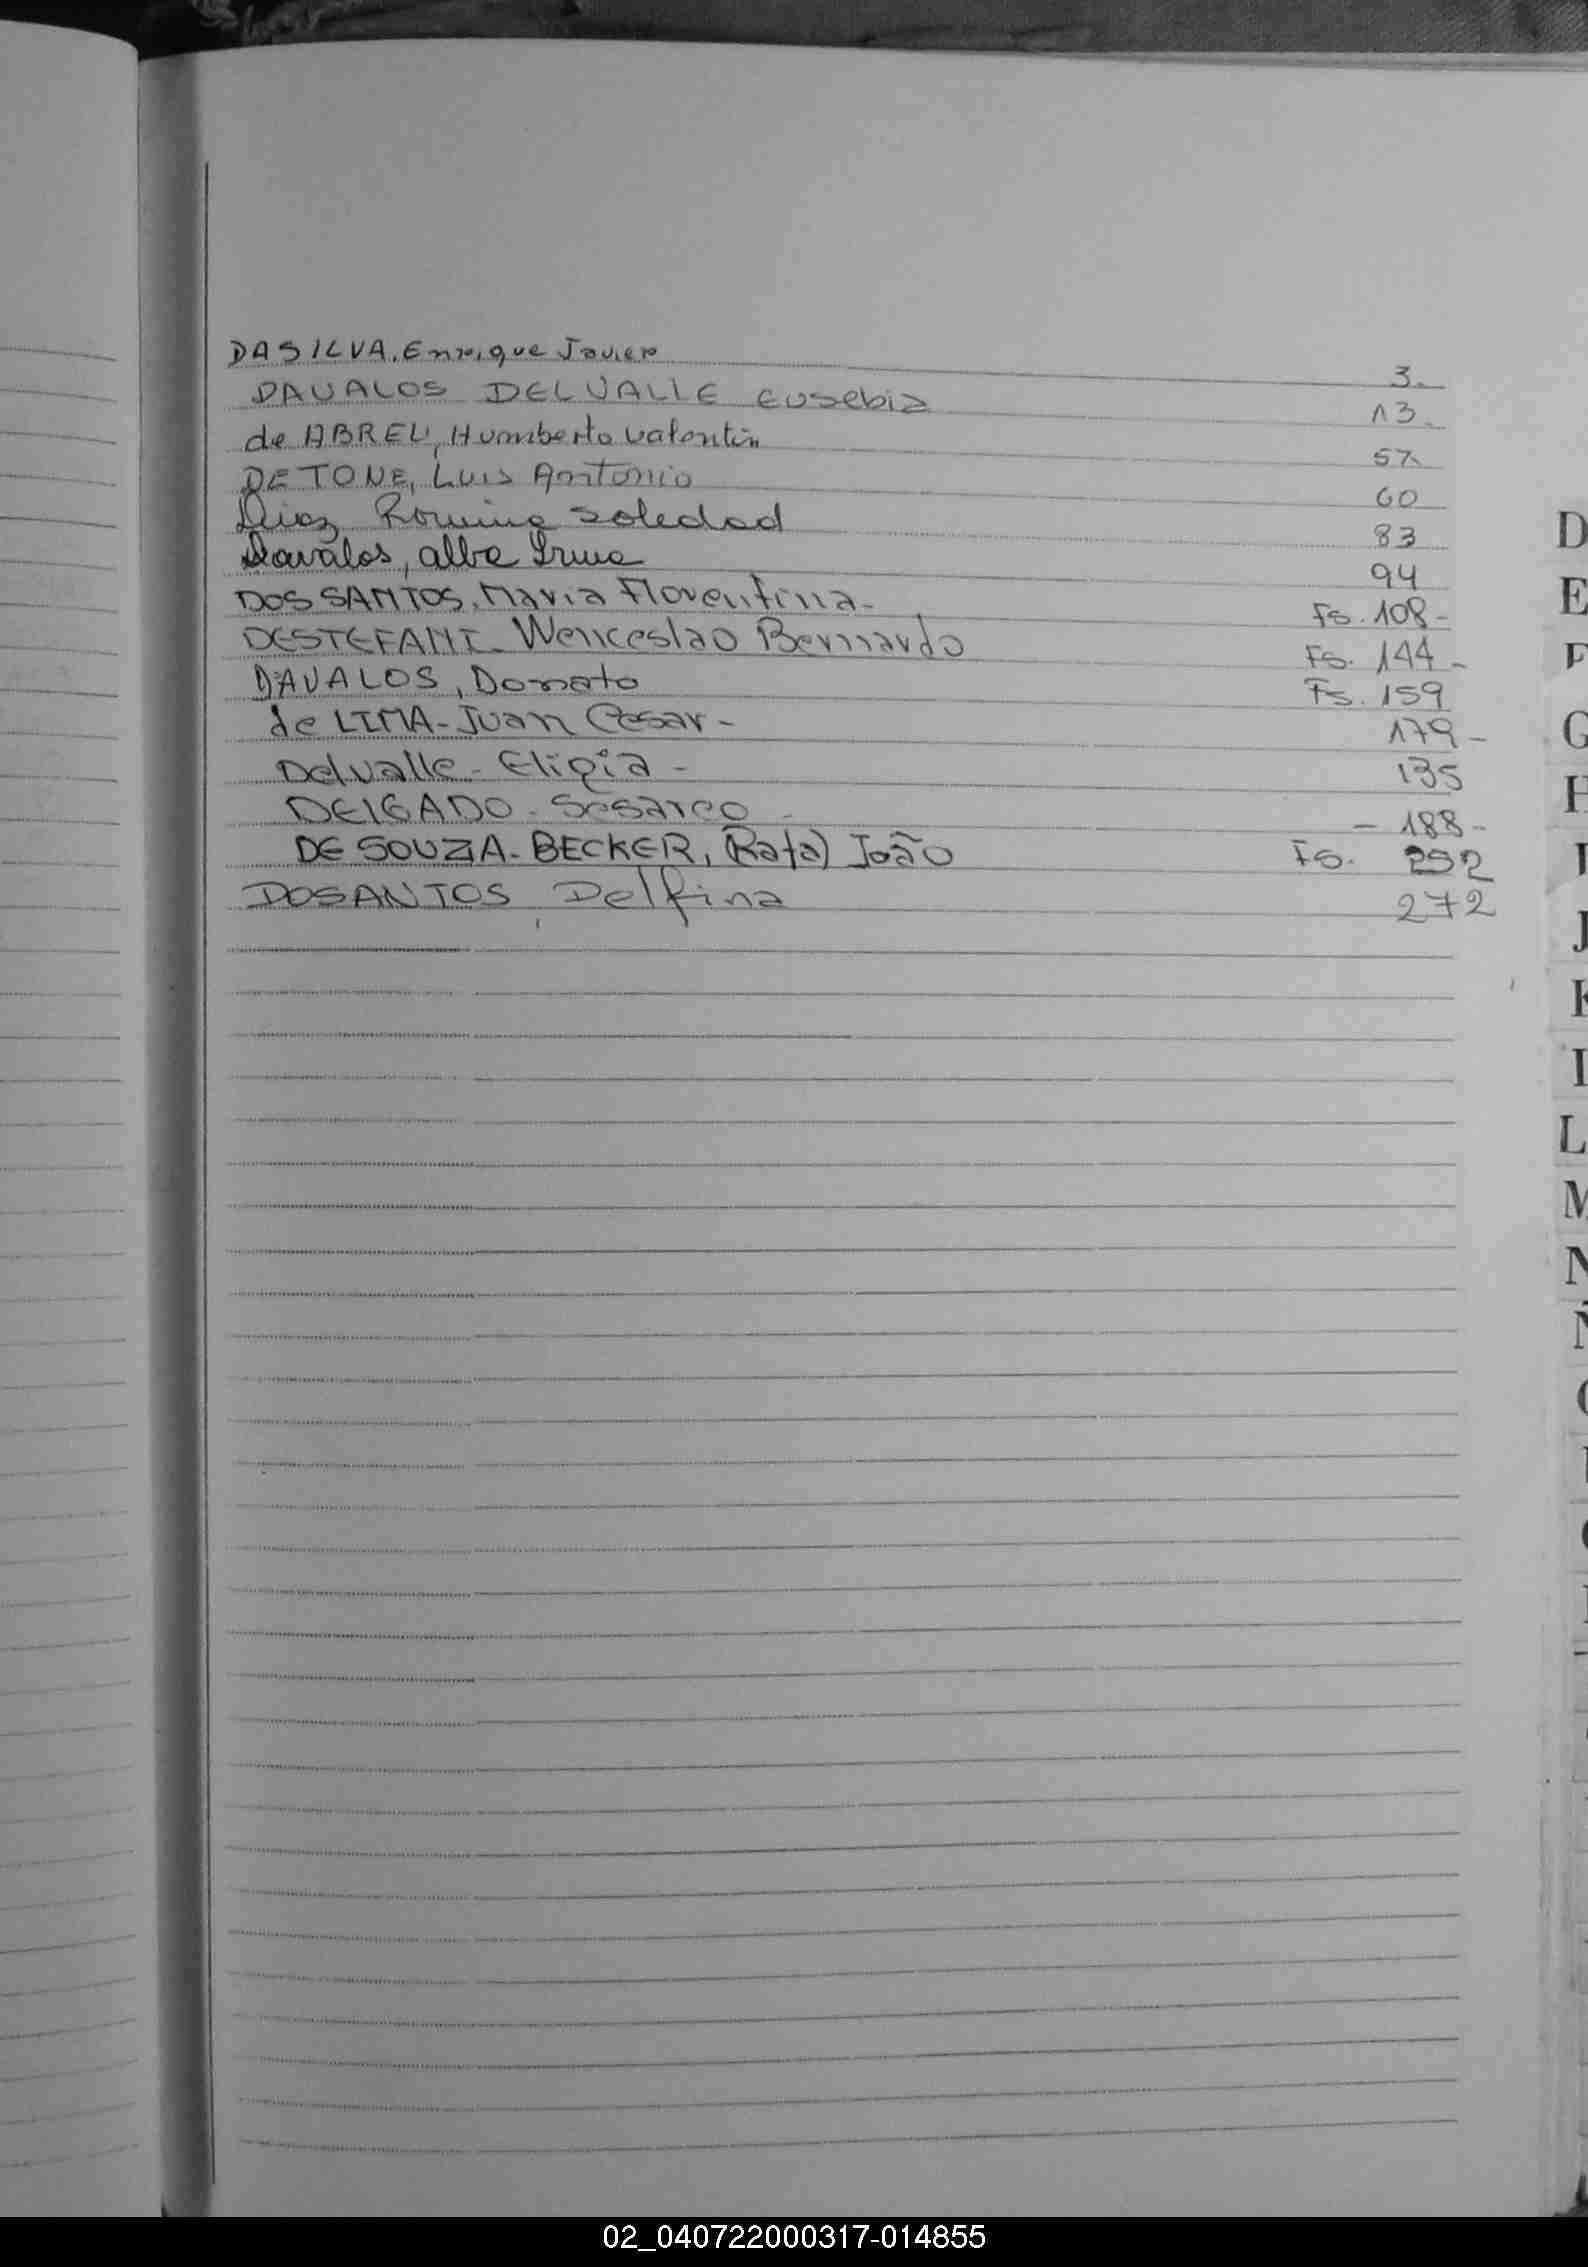 DA SILVA, Enrique Javier 3.
DAVALOS DELVALLE Eusebia 13.
de ABREU, Humberto Valentín 57.
DE TONE, Luis Antonio 60
Diaz Romina Soledad 83
Davalos, Alba Irma 94
DOS SANTOS, Maria Florentina- Fs. 108-
DESTEFANI- Wenceslao Bernardo Fs. 144-
DAVALOS, Donato Fs. 159
de LIMA- Juan Cesar- 179-
Delvalle- Eligia- 135
DELGADO- Sesareo - 188-
DE SOUZA-BECKER, (Rafa) João Fs. 252
DOSANTOS, Delfina 272
D
E
F
G
H
I
J
K
L
M
N
02_040722000317-014855